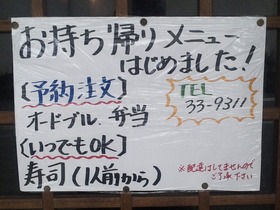 お持ち帰りメニュー
はじめました!
[予約注文]
オードブル、弁当
[いつでもOK]
寿司(1人前から)
TEL
33-9311
※配達はしてませんので
ご了承下さい